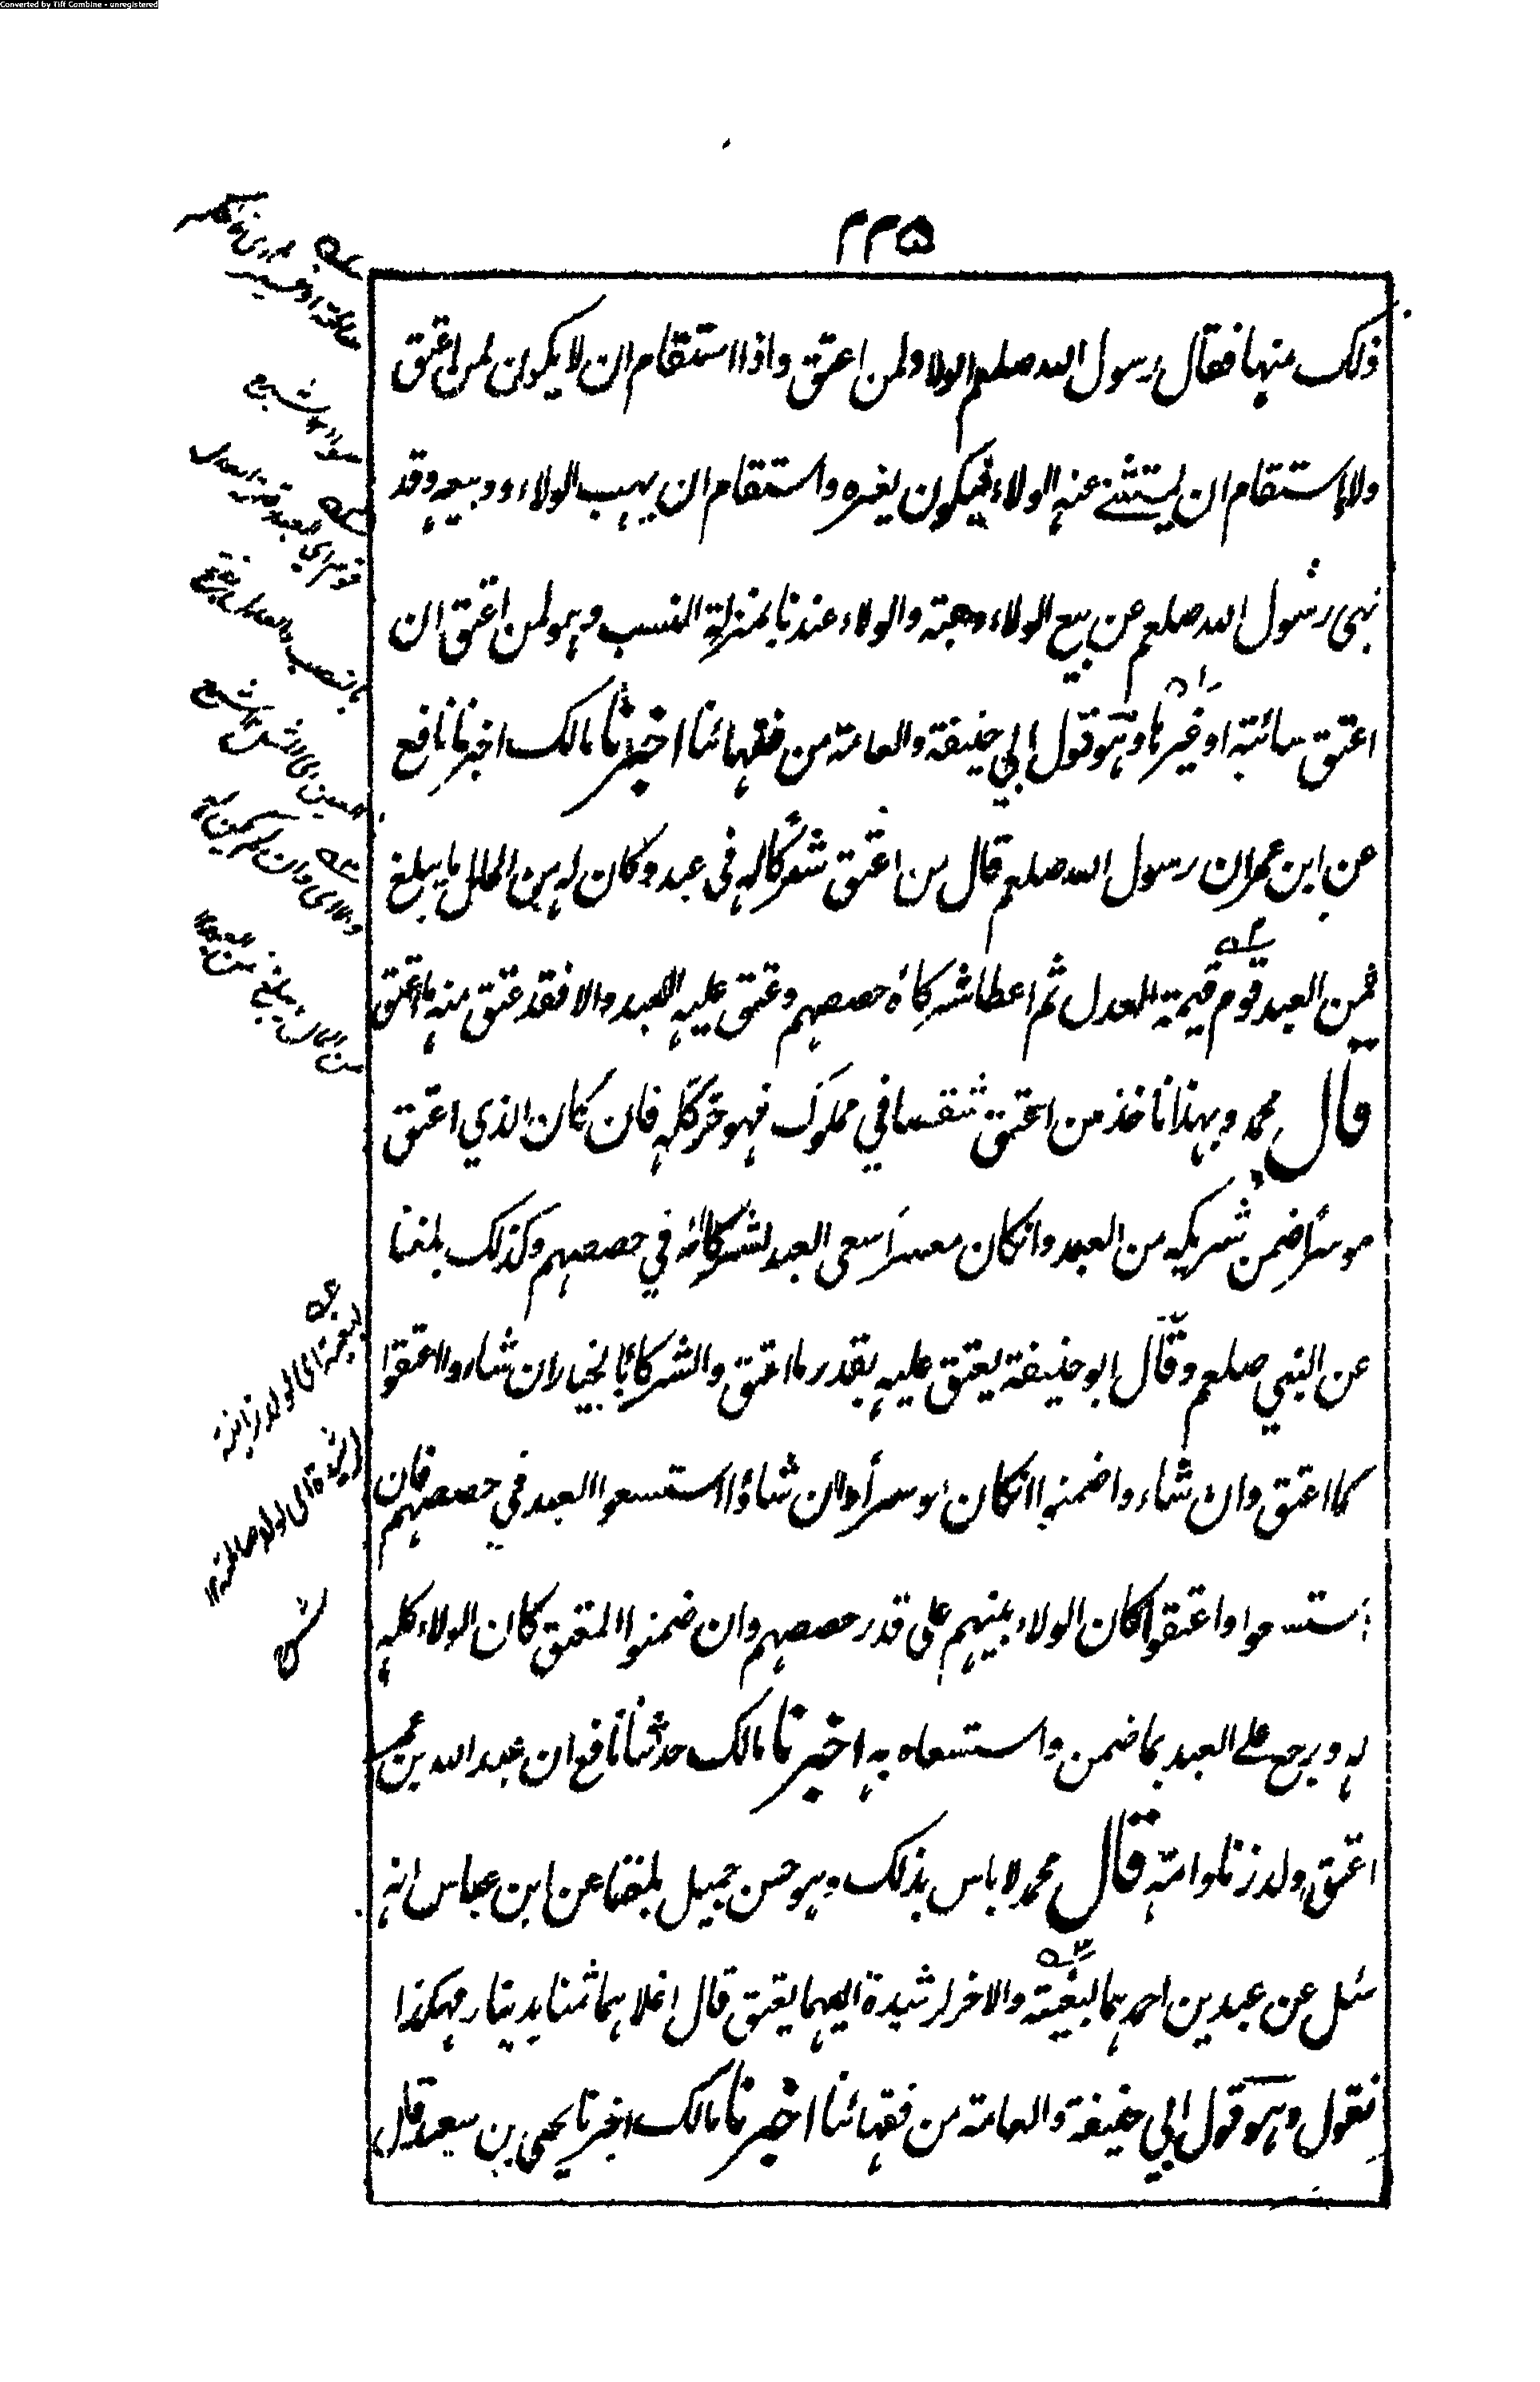 Converted by Tiff Combine - unregistered
۲۲۵
ذلك منها فقال رسول الله صلعم الولاء لمن اعتق واذا استقام ان لا يكون لمن اعتق
ولاء استقام ان يستثنى عنه الولاء فيكون لغيره واستقام ان يهب الولاء ويبيعه وقد
نهى رسول الله صلعم عن بيع الولاء وهبته والولاء عندنا بمنزلة النسب وهو لمن اعتق ان
اعتق سائبة او غيرها وهو قول ابي حنيفة والعامة من فقهائنا اخبرنا مالك اخبرنا نافع
عن ابن عمر ان رسول الله صلعم قال من اعتق شركا له في عبد وكان له من المال ما يبلغ
ثمن العبد قوم قيمة العدل ثم اعطا شركاؤه حصصهم وعتق عليه العبد والا فقد عتق منه ما اعتق
قال محمد وبهذا ناخذ من اعتق شقصا في مملوك فهو حر كله فان كان الذي اعتق
موسرا ضمن شريكه من العبد وانكان معسرا سعى العبد لشركائه في حصصهم وكذلك بلغنا
عن النبي صلعم وقال ابو حنيفة يعتق عليه بقدر ما اعتق والشركاء بالخيار ان شاءوا اعتقوا
كما اعتق وان شاءوا ضمنوه انكان موسرا وان شاؤا استسعوا العبد في حصصهم فان
استسعوا واعتقوا كان الولاء بينهم على قدر حصصهم وان ضمنوا المعتق كان الولاء كله
له ويرجع على العبد بما ضمن واستسعاه به اخبرنا مالك حدثنا نافع ان عبد الله بن عمر
اعتق ولد زنا وامه قال محمد لا باس بذلك وهو حسن جميل بلغنا عن ابن عباس انه
سئل عن عبدين احدهما لبغية والاخر لرشيدة ايهما يعتق قال اغلاهما ثمنا بدينار فهكذا
نقول وهو قول ابي حنيفة والعامة من فقهائنا اخبرنا مالك اخبرنا يحيى بن سعيد قال